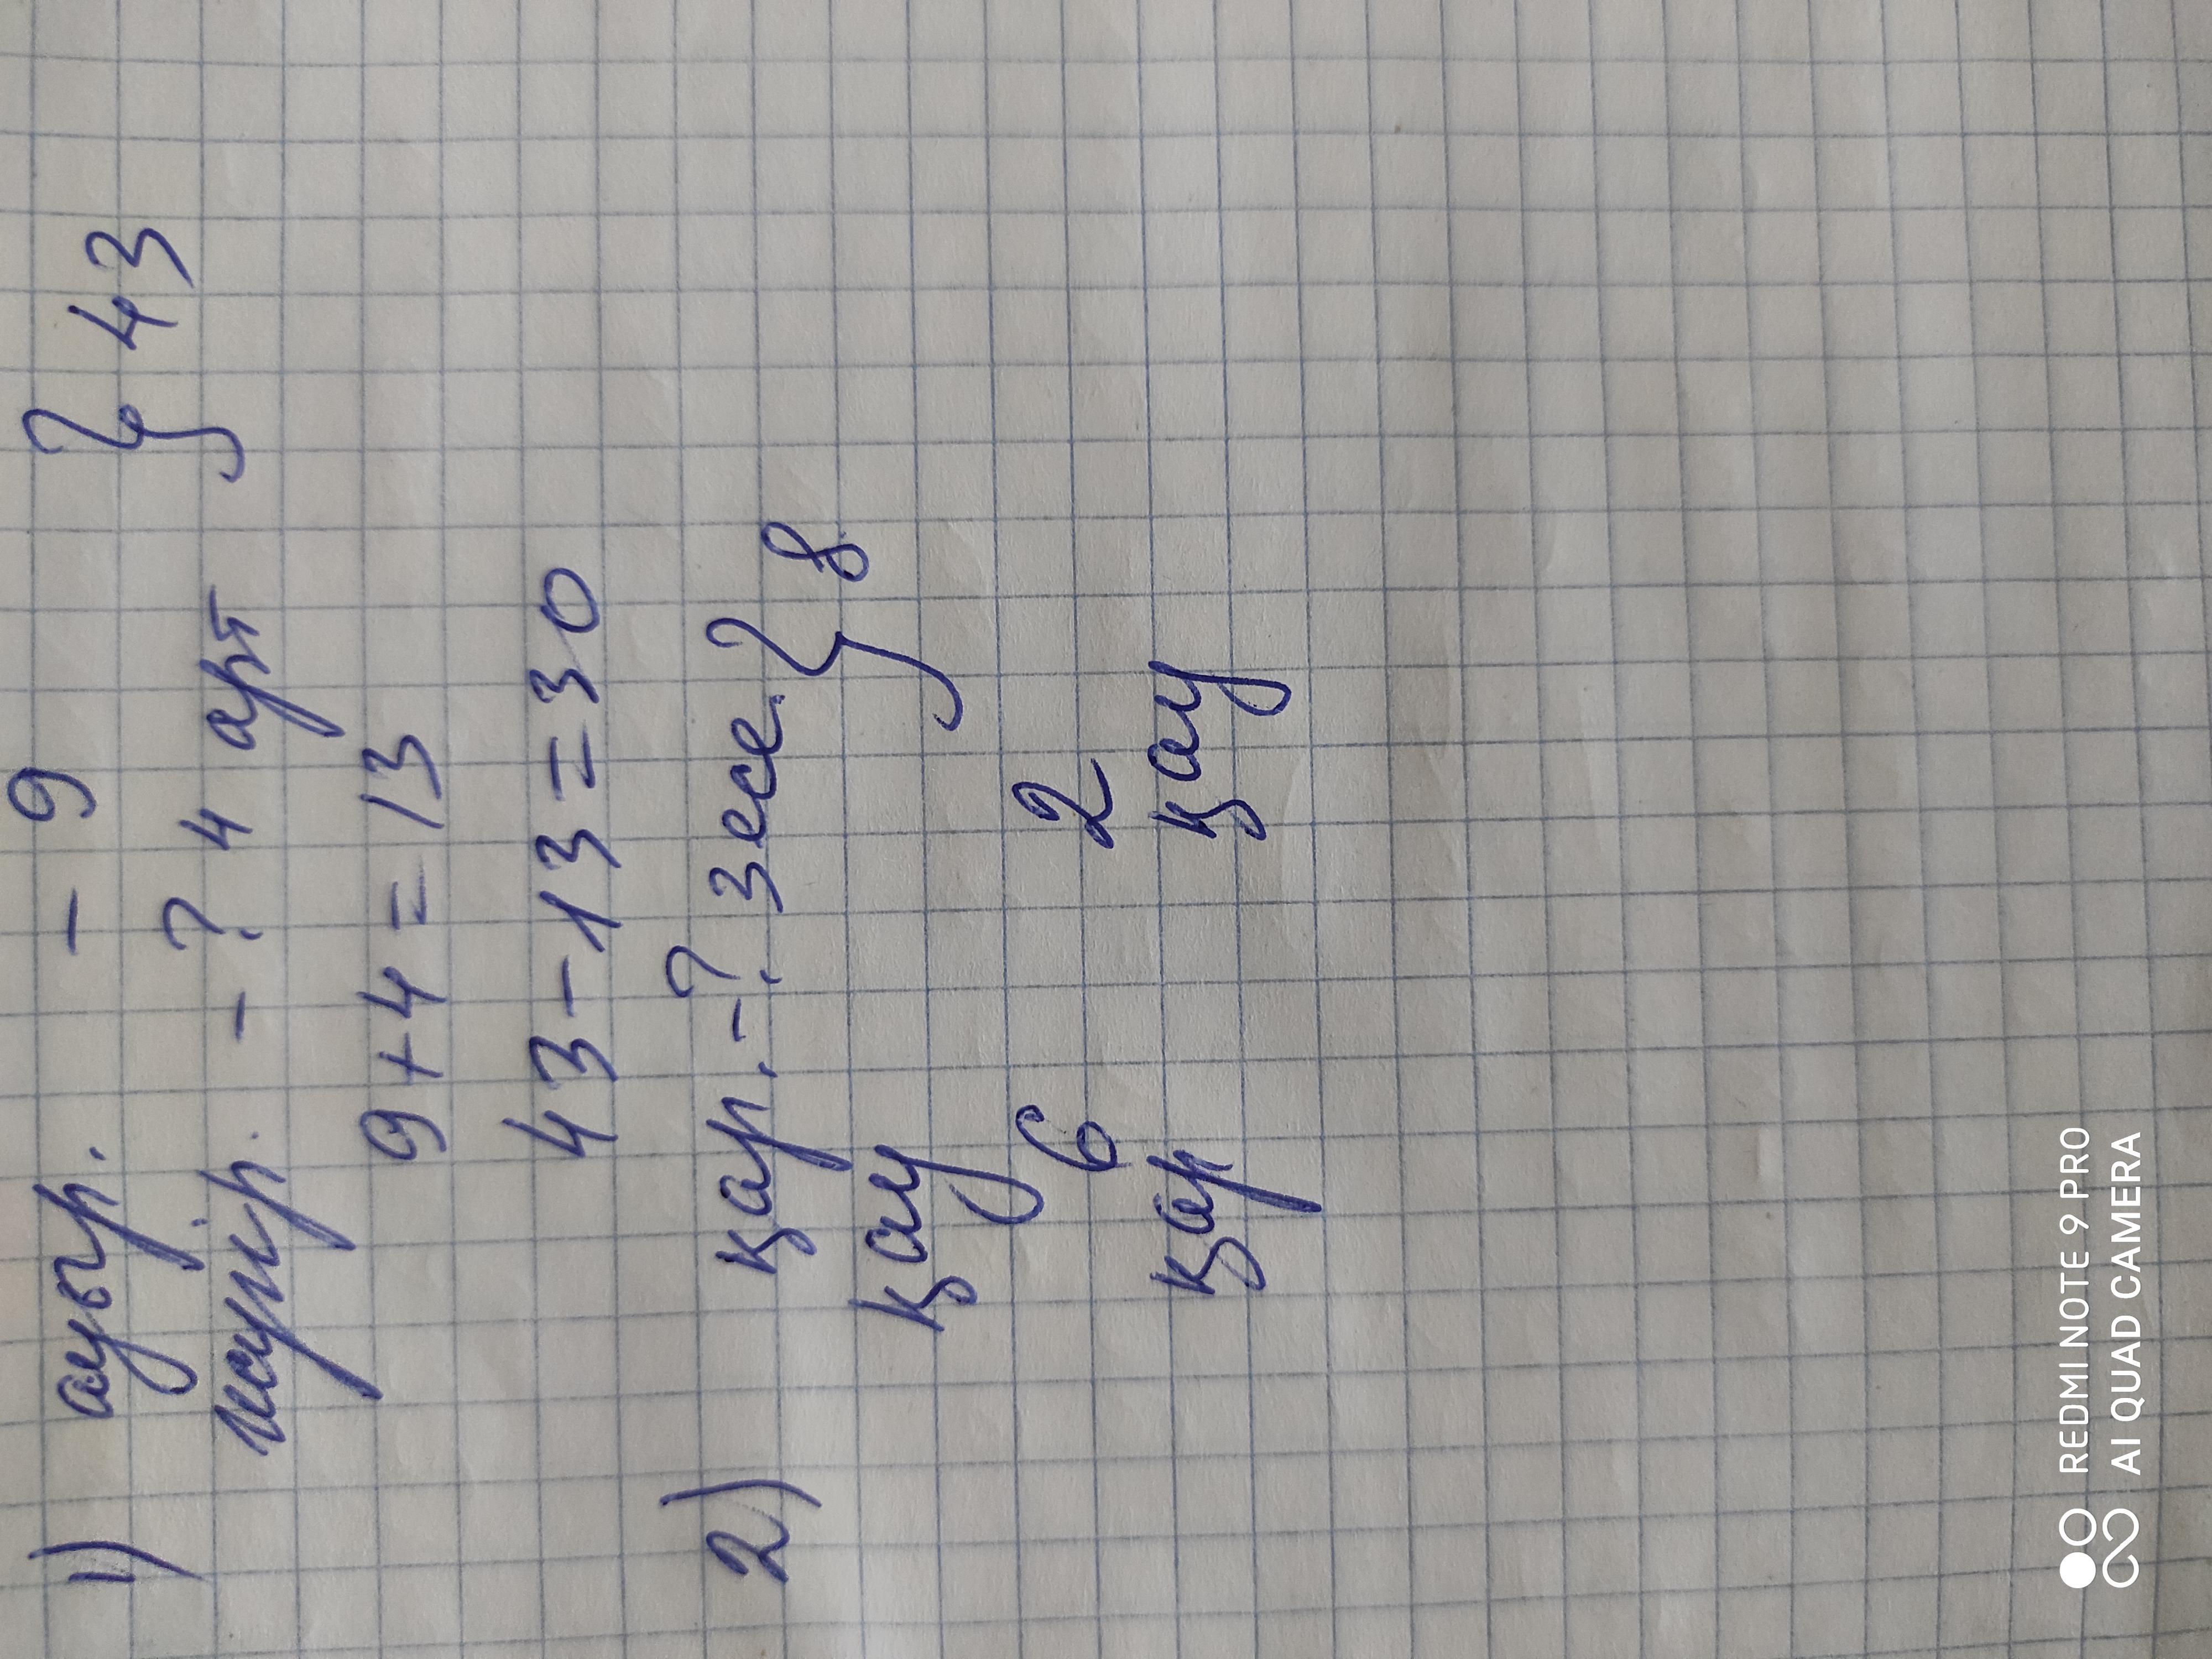 1) ауыр. - 9 } 43
- ? 4 арт
9 + 4 = 13
43 - 13 = 30
2) қар. - ? 3 есе. } 8
қау
6 2
қар қау
REDMI NOTE 9 PRO
AI QUAD CAMERA